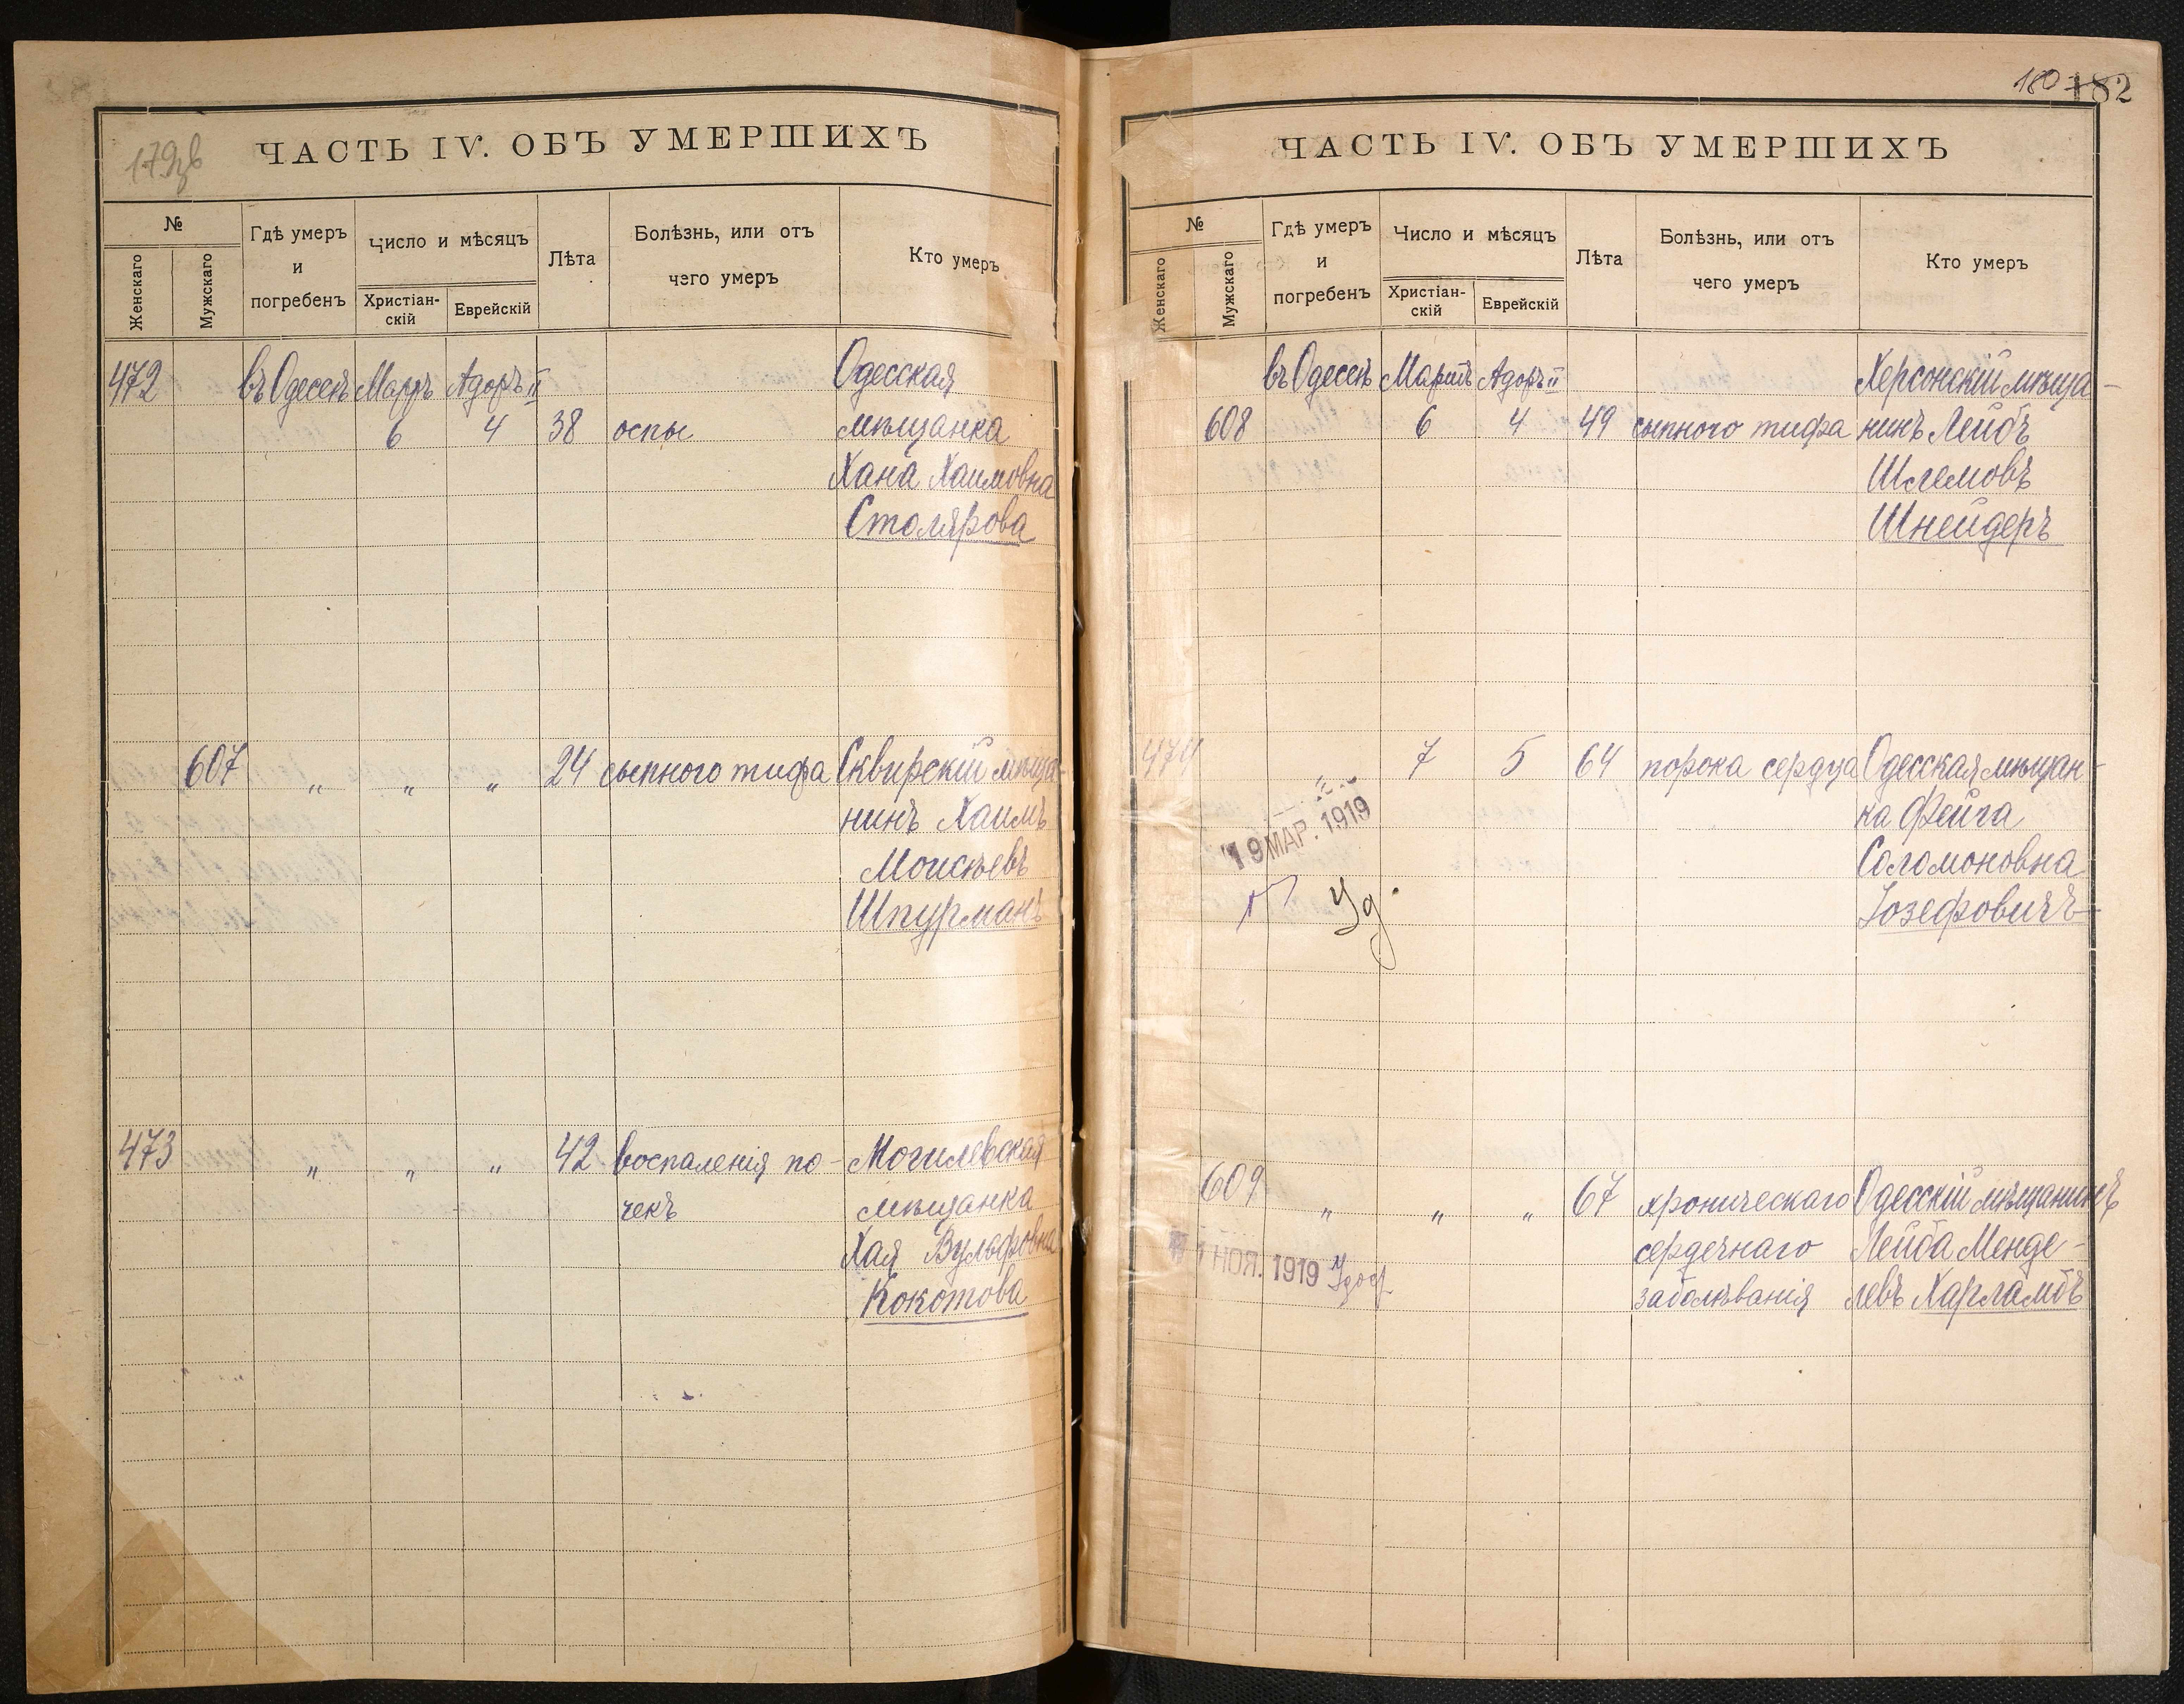 179об
ЧАСТЬ IV. ОБЪ УМЕРШИХЪ
№
Женскаго
Мужскаго
Гдѣ умеръ
и
погребенъ
Число и мѣсяцъ
Христіан-
скій
Еврейскій
Лѣта
Болѣзнь, или отъ
чего умеръ
Кто умеръ
472 въ Одессѣ Мартъ Адоръ II Одесская
6 4 38 оспы мѣщанка
Хана Хаимовна
Столярова
607 " " " 24 сыпного тифа Сквирскій мѣща-
нинъ Хаимъ
Моисѣевъ
Шпурманъ
473 " " " 42 воспаленія по- Могилевская
чекъ мѣщанка
Хая Вульфовна
Кокотова
180 182
ЧАСТЬ IV. ОБЪ УМЕРШИХЪ
№
Женскаго
Мужскаго
Гдѣ умеръ
и
погребенъ
Число и мѣсяцъ
Христіан-
скій
Еврейскій
Лѣта
Болѣзнь, или отъ
чего умеръ
Кто умеръ
въ Одессѣ Мартъ Адоръ II Херсонскій мѣща-
608 6 4 49 сыпного тифа нинъ Лейбъ
Шлемовъ
Шнейдеръ
474 7 5 64 порока сердца Одесская мѣщан-
19 МАР. 1919 ка Фейга
Соломоновна
Уд. Іозефовичъ
609 " " " 67 хроническаго Одесскій мѣщанинъ
сердечнаго Лейба Менде-
1 НОЯ. 1919 Удост
заболѣванія левъ Харламбъ